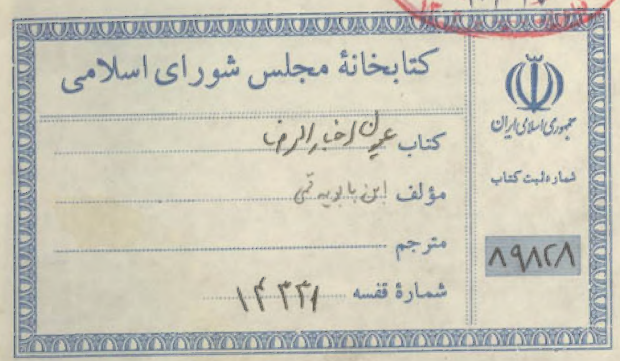 کتابخانهٔ مجلس شورای اسلامی
کتاب عیون اخبار الرضا
مؤلف ابن بابویه قمی
مترجم
شمارهٔ قفسه ۱۴۳۳۸
جمهوری اسلامی ایران
شماره ثبت کتاب
۸۹۸۲۸